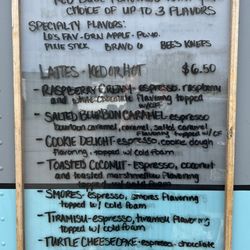 CHOICE OF UP TO 3 FLAVORS
SPECIALTY FLAVORS:
LATTES - ICED OR HOT $6.50
- RASPBERRY CREAM - espresso, raspberry
and white chocolate flavoring topped
- SALTED BOURBON CARAMEL - espresso
bourbon caramel, caramel, salted caramel
flavoring topped w/CF
- COOKIE DELIGHT - espresso, cookie dough
flavoring - topped w/ cold foam
- TOASTED COCONUT - espresso, coconut
and toasted marshmallow flavoring
w/ cold foam
- SMORES - Espresso, smores flavoring
topped w/ cold foam
- TIRAMISU - espresso, tiramisu flavoring
topped w/ cold foam
- TURTLE CHEESECAKE - espresso, chocolate